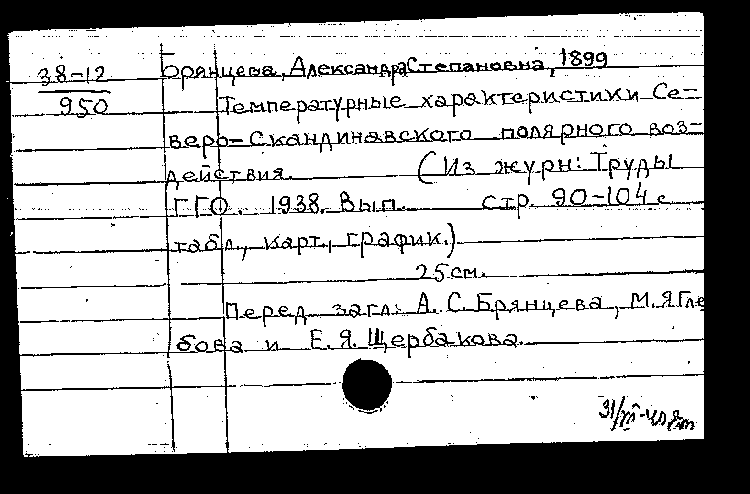 38-12
950
Брянцева, Александра Степановна, 1899
Температурные характеристики Се-
веро-Скандинавского полярного воз-
действия. (Из журн: Труды
ГГО. 1938. Вып. стр. 90-104 с
табл., карт., график.)
25 см.
Перед загл: А. С. Брянцева, М. Я Гле
бова и Е. Я. Щербакова.